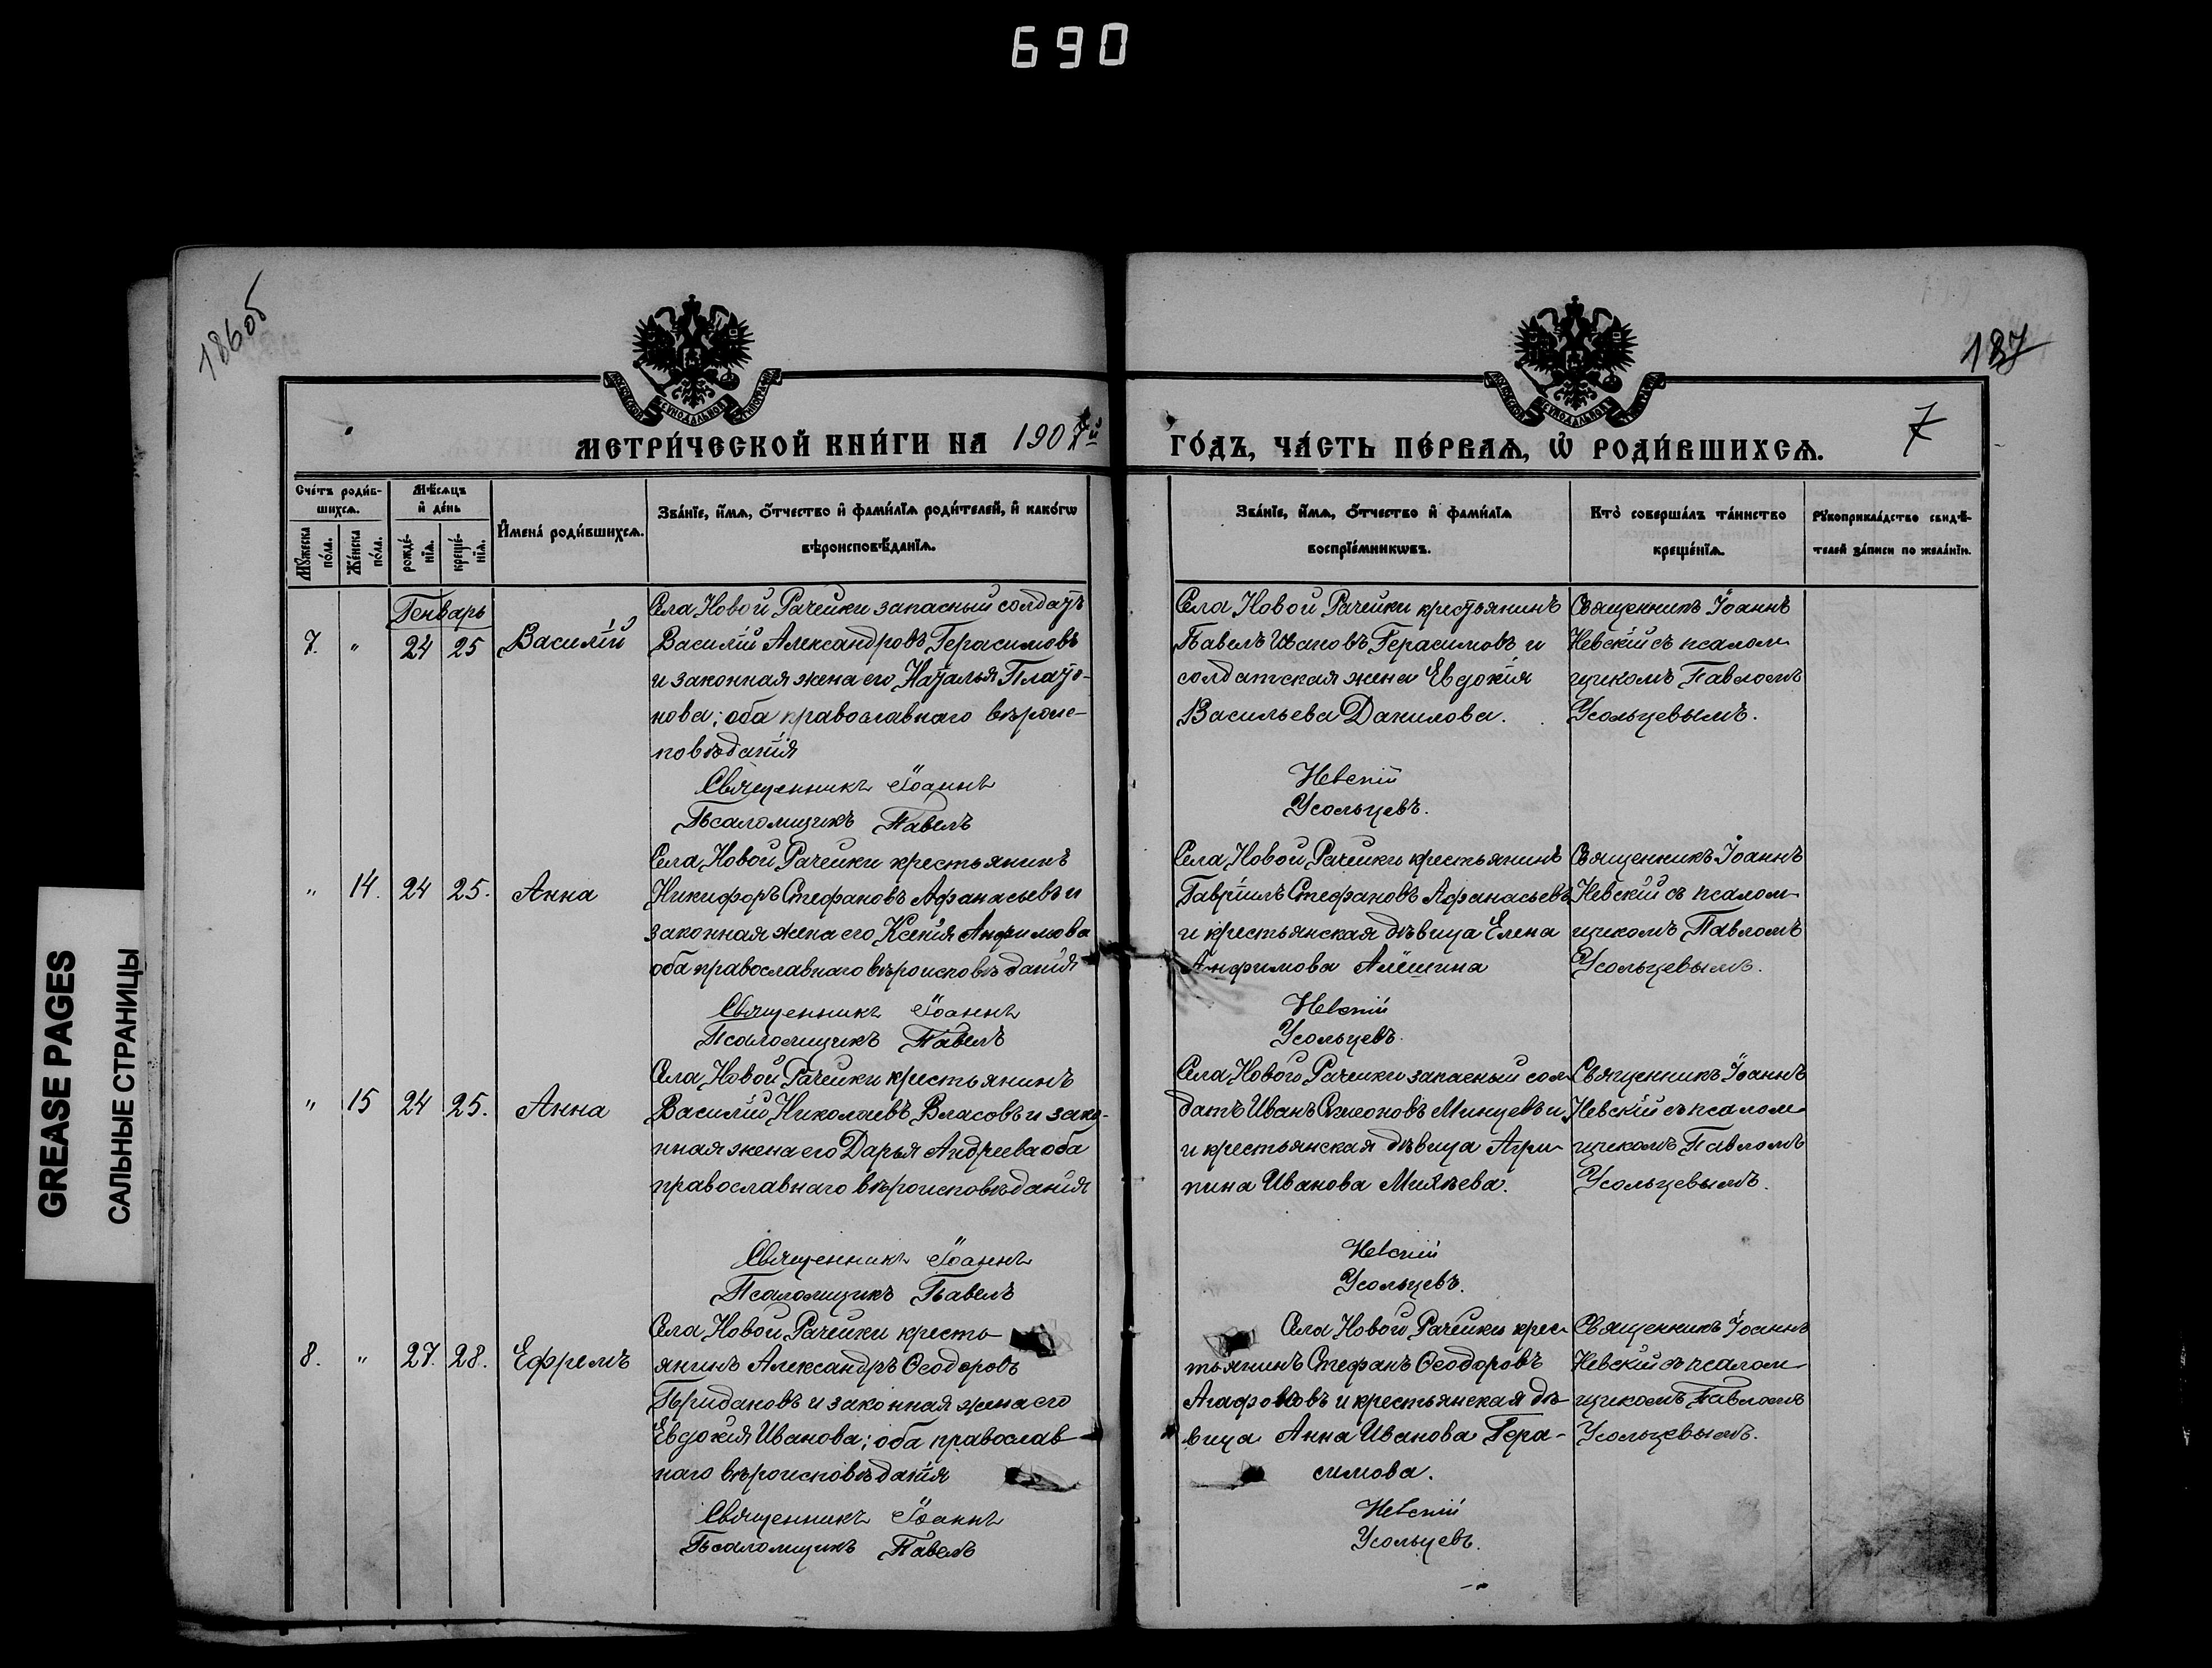 690
186об
187
7
МОСКОВСКОЙ СИНОДАЛЬНОЙ ТИПОГРАФІИ
МОСКОВСКОЙ СИНОДАЛЬНОЙ ТИПОГРАФІИ
МЕТРИ́ЧЕСКОЙ КНИ́ГИ НА 1907й
ГО́ДЪ, ЧА́СТЬ ПЕ́РВАѦ, Ѽ РОДИ́ВШИХСѦ.
Сче́тъ роди́в-
шихсѧ.
Мꙋ́жеска
по́ла.
Же́нска
по́ла.
Мѣ́сѧцъ
и҆ де́нь
рожде́-
нїѧ.
креще́-
нїѧ.
И҆мена̀ роди́вшихсѧ.
Зва́нїе, и҆́мѧ, ѻ҆́тчество и҆ фами́лїѧ роди́телей, и҆ како́гѡ
вѣроисповѣ́данїѧ.
Зва́нїе, и҆́мѧ, ѻ҆́тчество и҆ фами́лїѧ
воспрїе́мникѡвъ.
Кто̀ соверша́лъ та́инство
креще́нїѧ.
Рꙋкоприкла́дство свидѣ́-
телей за́писи по жела́нїю.
Генварь
7. " 24 25 Василій
Села Новой Рачейки запасный солдатъ
Василій Александровъ Герасимовъ
и законная жена его Наталья Плато-
нова; оба православнаго вѣроис-
повѣданія
Священникъ Іоаннъ
Псаломщикъ Павелъ
Села Новой Рачейки крестьянинъ
Павелъ Ивановъ Герасимовъ и
солдатская жена Евдокія
Васильева Данилова.
Невскій
Усольцевъ.
Священникъ Іоаннъ
Невскій съ псалом-
щикомъ Павломъ
Усольцевымъ.
" 14. 24 25. Анна
Села Новой Рачейки крестьянинъ
Никифоръ Стефановъ Афанасьевъ и
законная жена его Ксенія Анфимова
оба православнаго вѣроисповѣданія
Священникъ Іоаннъ
Псаломщикъ Павелъ
Села Новой Рачейки крестьянинъ
Гавріилъ Стефановъ Афанасьевъ
и крестьянская дѣвица Елена
Анфимова Алёшина
Невскій
Усольцевъ.
Священникъ Іоаннъ
Невскій съ псалом-
щикомъ Павломъ
Усольцевымъ.
" 15 24 25. Анна
Села Новой Рачейки крестьянинъ
Василій Николаевъ Власовъ и зако-
нная жена его Дарья Андреева оба
православнаго вѣроисповѣданія
Священникъ Іоаннъ
Псаломщикъ Павелъ
Села Новой Рачейки запасный сол-
датъ Иванъ Симеоновъ и
и крестьянская дѣвица Агри-
пина Иванова
Невскій
Усольцевъ.
Священникъ Іоаннъ
Невскій съ псалом-
щикомъ Павломъ
Усольцевымъ.
8. " 27. 28. Ефремъ
Села Новой Рачейки кресть-
янинъ Александръ Ѳеодоровъ
Придановъ и законная жена его
Евдокія Иванова; оба православ-
наго вѣроисповѣданія
Священникъ Іоаннъ
Псаломщикъ Павелъ
Села Новой Рачейки крес-
тьянинъ Стефанъ Ѳеодоровъ
Агафоновъ и крестьянская дѣ-
вица Анна Иванова Гера-
симова.
Невскій
Усольцевъ.
Священникъ Іоаннъ
Невскій съ псалом-
щикомъ Павломъ
Усольцевымъ.
GREASE PAGES
САЛЬНЫЕ СТРАНИЦЫ